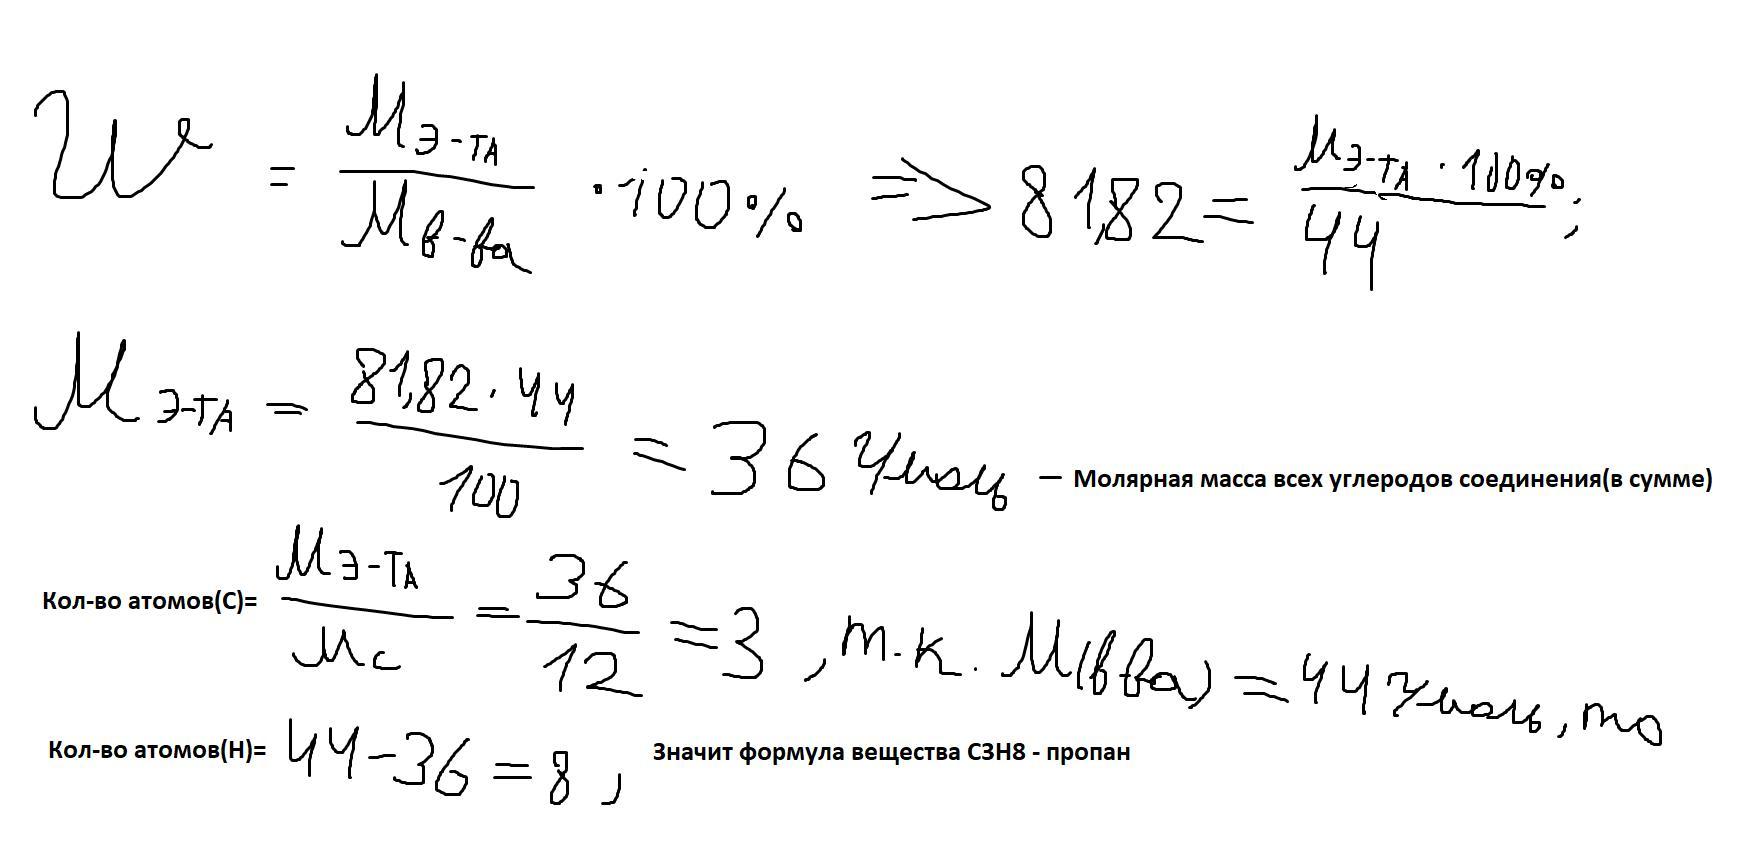 W = Mэ-та / Mв-ва · 100% => 81,82 = Mэ-та · 100% / 44 ;
Mэ-та = 81,82 · 44 / 100 = 36 г/моль — Молярная масса всех углеродов соединения(в сумме)
Кол-во атомов(С)= Mэ-та / Mc = 36 / 12 = 3 , т.к. M(в-ва) = 44 г/моль, то
Кол-во атомов(Н)= 44-36=8 , Значит формула вещества С3Н8 - пропан